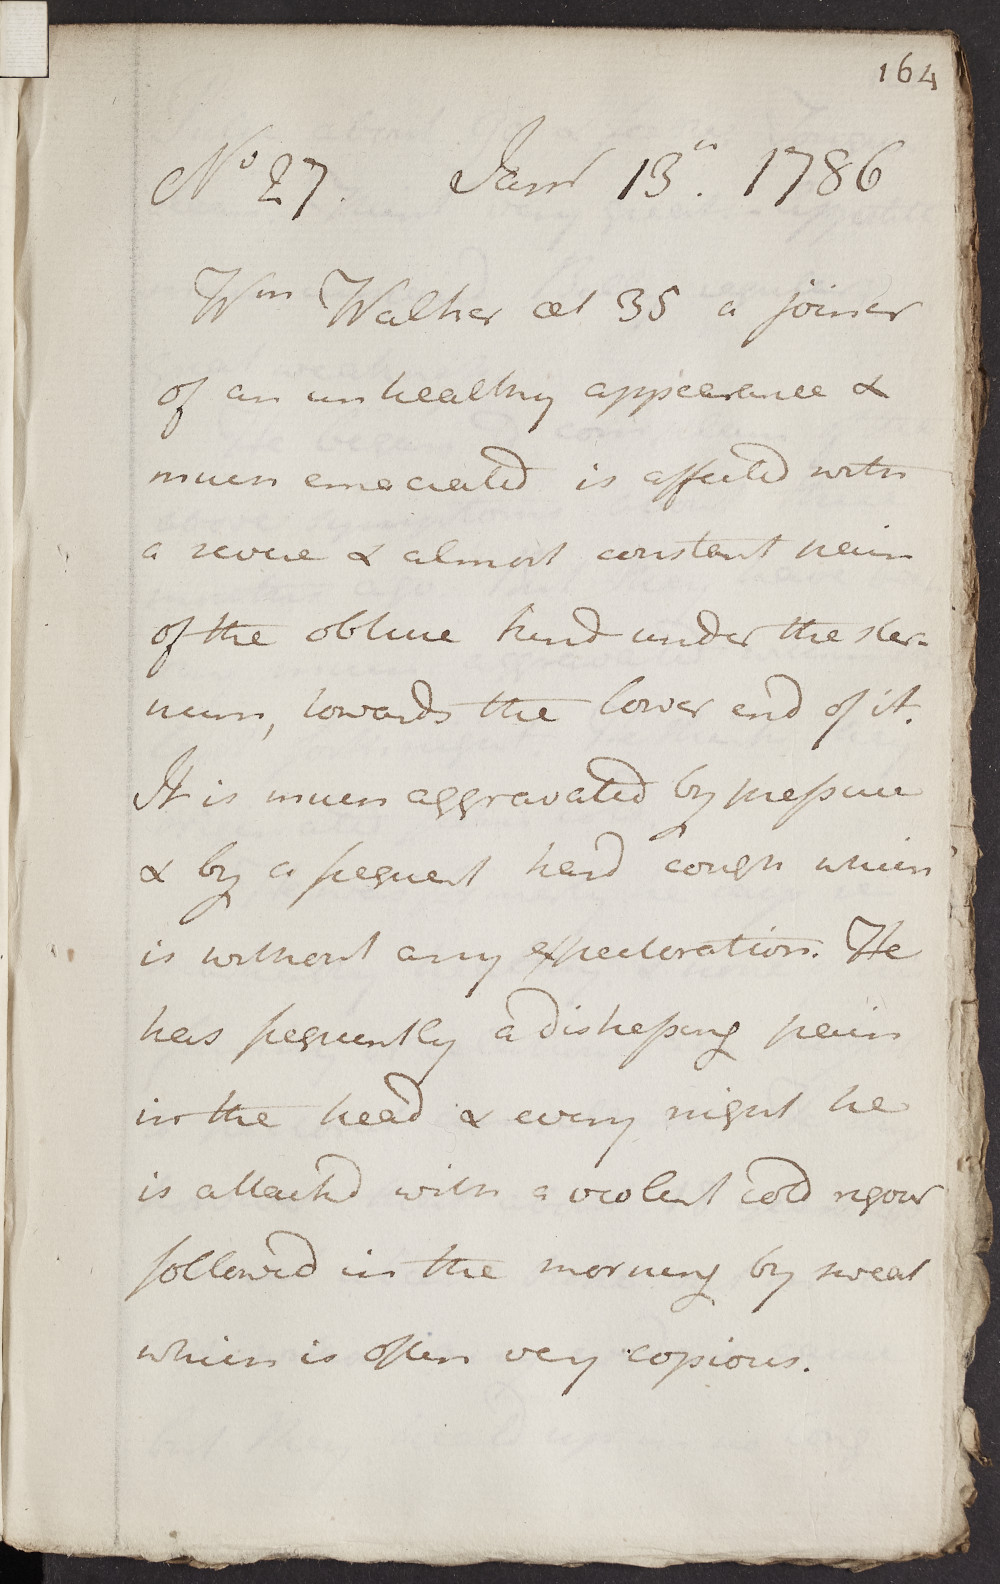 164
No 27. Janr 13th. 1786
Wm Walker æt 35 a joiner
of an unhealthy appearance &
much emaciated is affected with
a severe & almost constant pain
of the obtuse kind under the ster-
num, towards the lower end of it.
It is much aggravated by pressure
& by a frequent hard cough which
is without any expectoration. He
has frequently a distressing pain
in the head & every night he
is attacked with a violent cold rigour
followed in the morning by sweat
which is often very copious.